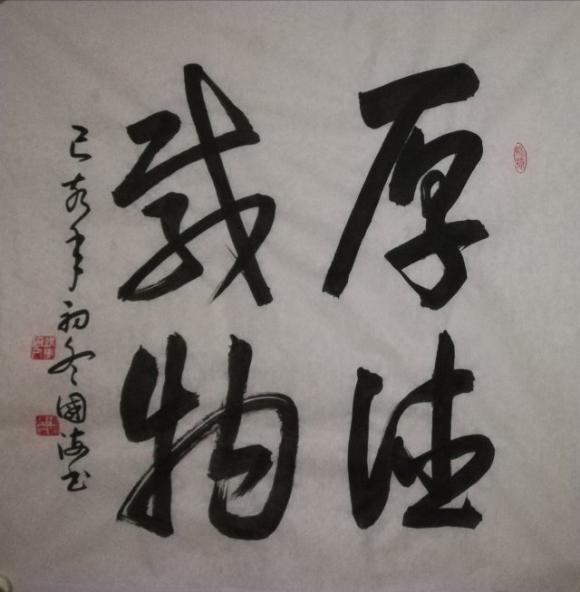 厚德
载物
己亥年初冬國海书